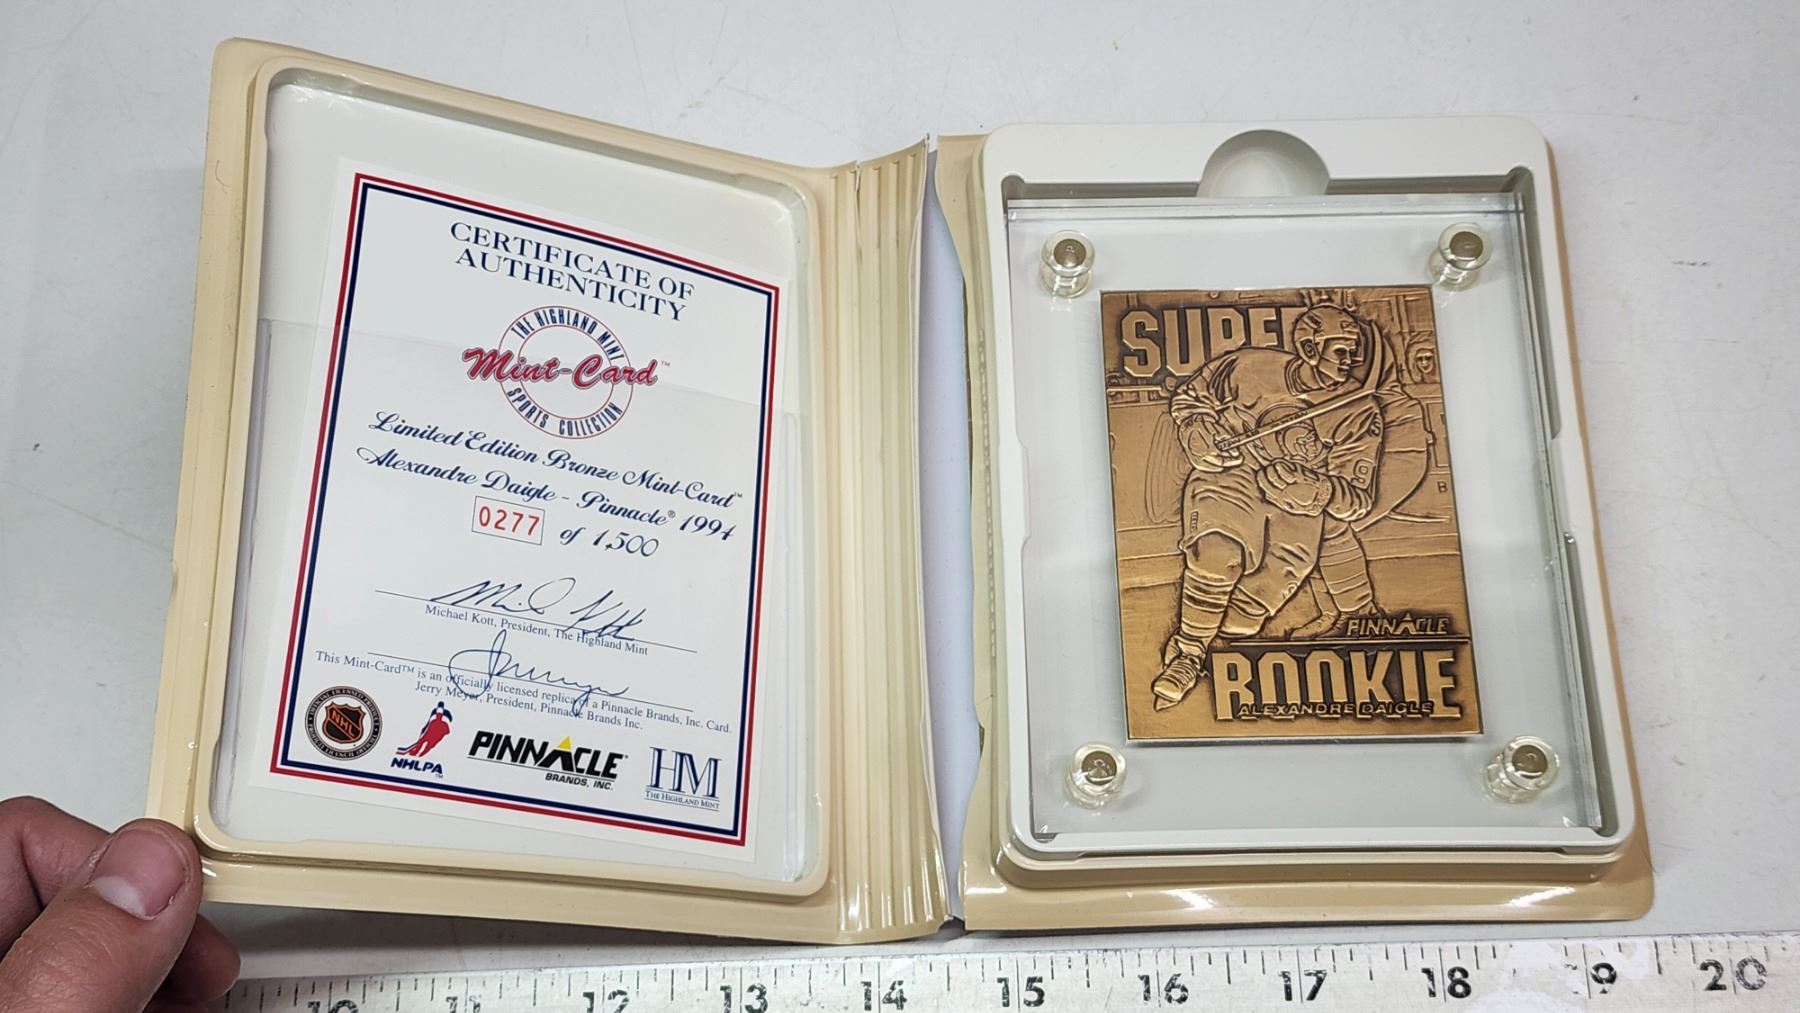 CERTIFICATE OF
AUTHENTICITY
THE HIGHLAND MINT
Mint-Card™
SPORTS COLLECTION
Limited Edition Bronze Mint-Card™
Alexandre Daigle - Pinnacle® 1994
0277 of 1,500
Michael Kott, President, The Highland Mint
This Mint-Card™ is an officially licensed replica of a Pinnacle Brands, Inc. Card.
Jerry Meyer, President, Pinnacle Brands Inc.
NHL
NHLPA™
PINNACLE®
BRANDS, INC.
HM
THE HIGHLAND MINT
SUPER
PINNACLE
ROOKIE
ALEXANDRE DAIGLE
10 11 12 13 14 15 16 17 18 19 20